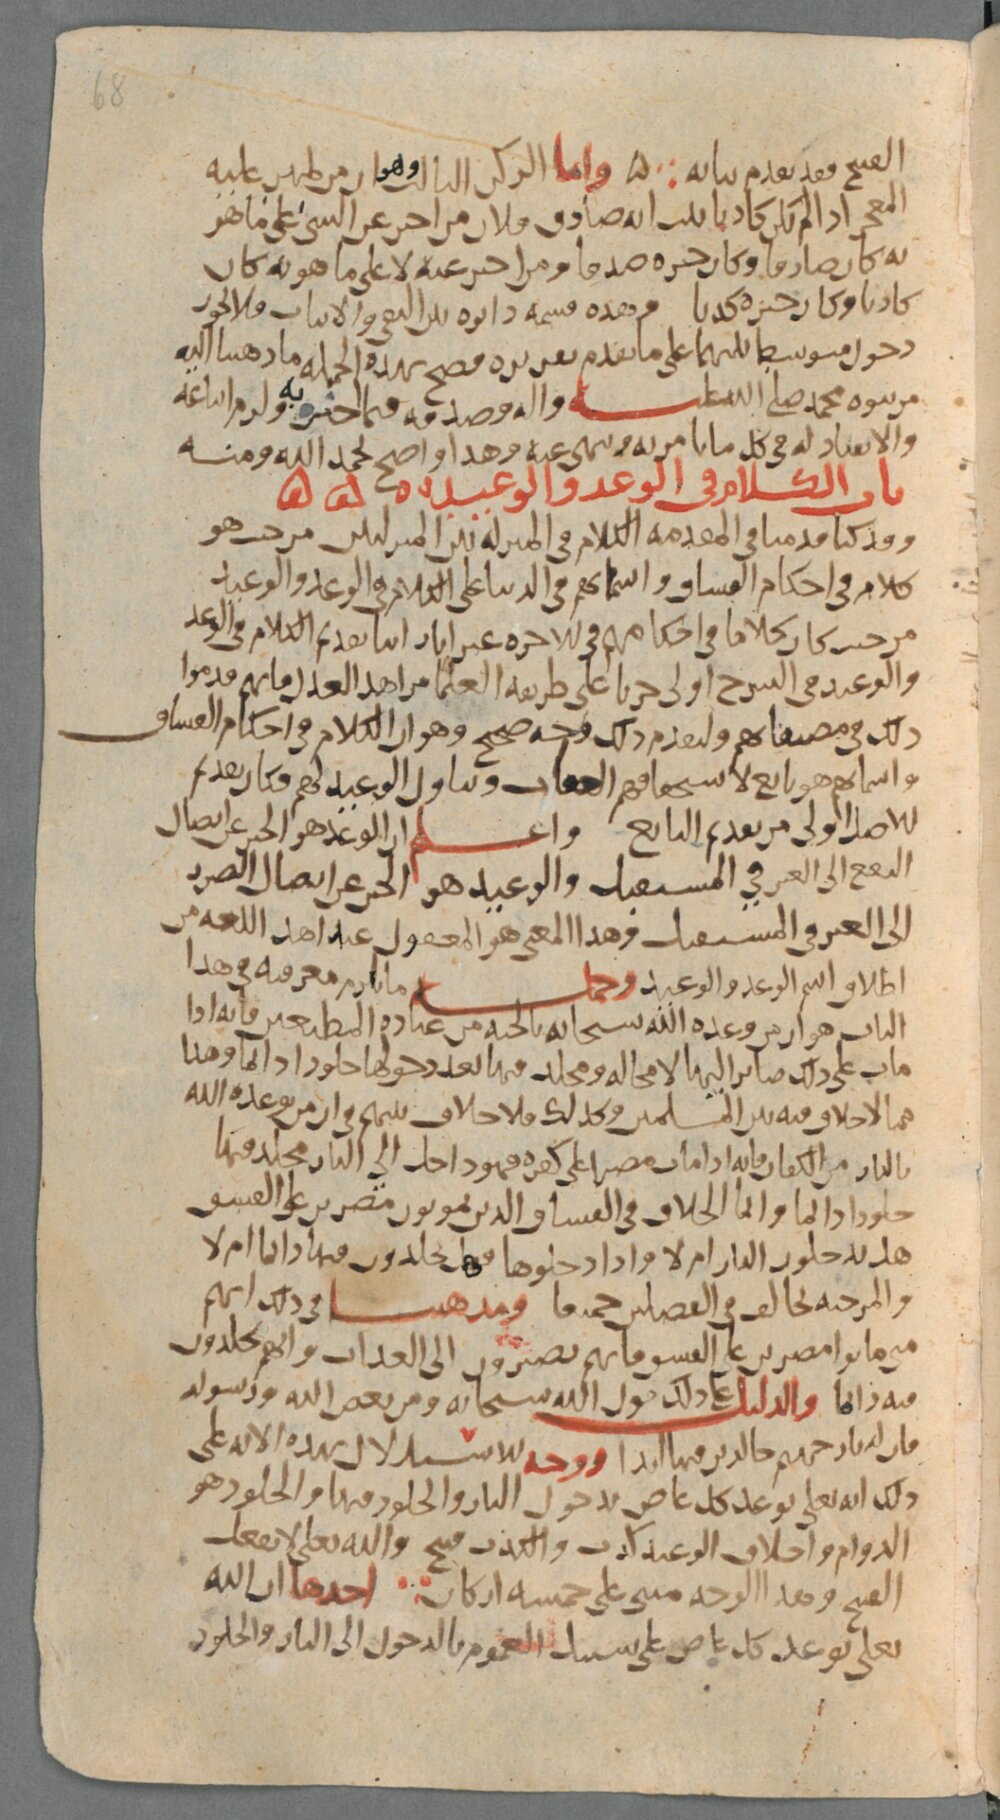 68
القبيح وقد تقدم بيانه ه واما الركن الثالث وهو ان من ظهر عليه
المعجز اذا لم يكن كاذبا ثبت انه صادق فلان من اخبر عن الشيء على ما هو
به كان صادقا وكان خبره صدقا ومن اخبر عنه لا على ما هو به كان
كاذبا وكان خبره كذبا وهذه قسمة دايرة بين النفي والاثبات فلا يجوز
دخول متوسط بينهما على ما تقدم تقريره فصح بهذه الجملة ما ذهبنا اليه
من نبوة محمد صلى الله عليه واله وصدقه فيما اخبر به ولزم اتباعه
والانقياد له في كل ما يامر به وينهى عنه وهذا واضح بحمد الله ومنه
باب الكلام في الوعد والوعيد ه ه ه
وقد كنا قدمنا في المقدمة الكلام في المنزلة بين المنزلتين من حيث هو
كلام في احكام الفساق واسمائهم في الدنيا على الكلام في الوعد والوعيد
من حيث كان كلاما في احكامهم في الاخرة غير انا راينا تقديم الكلام في الوعد
والوعيد في الشرح اولى جريا على طريقة العلما من اهل العدل فانهم قدموا
ذلك في مصنفاتهم ولتقدم ذلك وجه صحيح وهو ان الكلام في احكام الفساق
واسمائهم هو تابع لاستحقاقهم العقاب وتناول الوعيد لهم فكان تقديم
الاصل اولى من تقديم التابع واعلم ان الوعد هو الخبر عن ايصال
النفع الى الغير في المستقبل والوعيد هو الخبر عن ايصال الضرر
الى الغير في المستقبل وهذا المعنى هو المعقول عند اهل اللغة من
اطلاق اسم الوعد والوعيد وجملة ما يلزم معرفته في هذا
الباب هو ان من وعده الله سبحانه بالجنة من عباده المطيعين فانه اذا
مات على ذلك صاير اليها لا محالة ومخلد فيها بعد دخولها خلودا دائما وهذا
مما لا خلاف فيه بين المسلمين وكذلك فلا خلاف بينهم في ان من توعده الله
بالنار من الكفار فانه اذا مات مصرا على كفره فهو داخل الى النار مخلد فيها
خلودا دائما وانما الخلاف في الفساق الذين يموتون مصرين على الفسق
هل يدخلون النار ام لا واذا دخلوها فهل يخلدون فيها دائما ام لا
والمرجئة تخالف في الفصلين جميعا ومذهبنا في ذلك انهم
متى ماتوا مصرين على الفسق فانهم يصيرون الى العذاب وانهم يخلدون
فيه دائما والدليل على ذلك قول الله سبحانه ومن يعص الله ورسوله
فان له نار جهنم خالدين فيها ابدا ووجه الاستدلال بهذه الاية على
ذلك انه تعالى توعد كل عاص بدخول النار والخلود فيها والخلود هو
الدوام واخلاف الوعيد كذب والكذب قبيح والله تعالى لا يفعل
القبيح وهذا الوجه مبني على خمسة اركان احدها ان الله
تعالى توعد كل عاص على سبيل العموم بالدخول الى النار والخلود